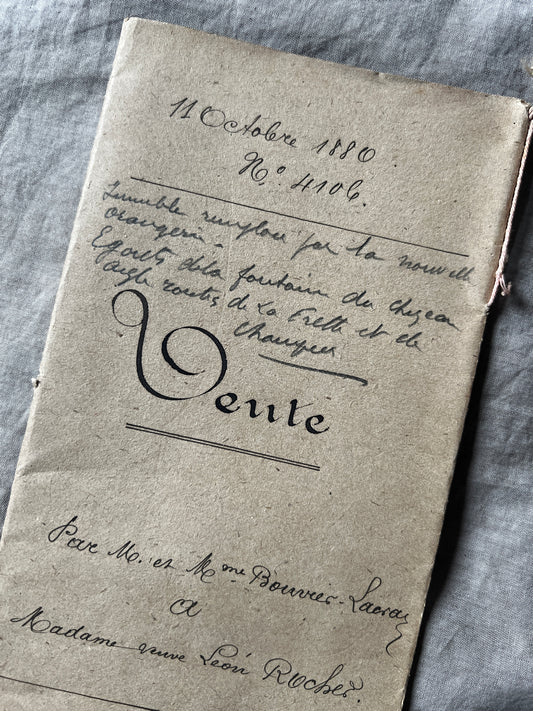 11 Octobre 1880.
N.º 4106.
Immeuble remplacé par la nouvelle
orangerie.
Egouts de la fontaine du
angle routes de La Frette et de
Champier
Vente
Par M. et Mme Bouvier-Lacroix
a
Madame veuve Léon Rocher.